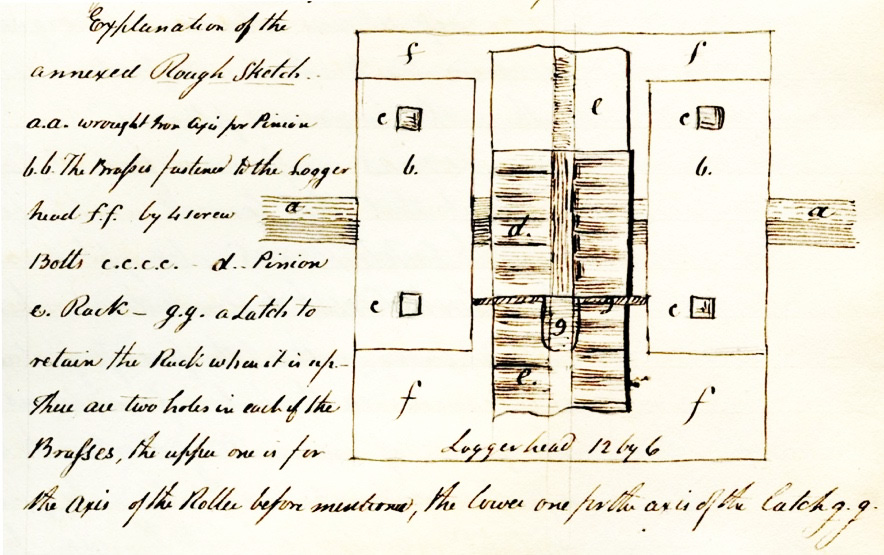 Explanation of the
annexed Rough Sketch.
a.a. wrought Iron Axis for Pinion
b.b. The Brasses fastened to the Logger
head f.f. by 4 screw
Bolts c.c.c.c. - d.. Pinion
e. Rack - g.g. a Catch to
retain the Rack when it is up -
There are two holes in each of the
Brasses, the upper one is for
the Axis of the Roller before mentioned, the lower one for the axis of the Catch g.g.
f f
c e c
b. b.
a a
d.
c g g c
e.
f f
Loggerhead 12 by 6